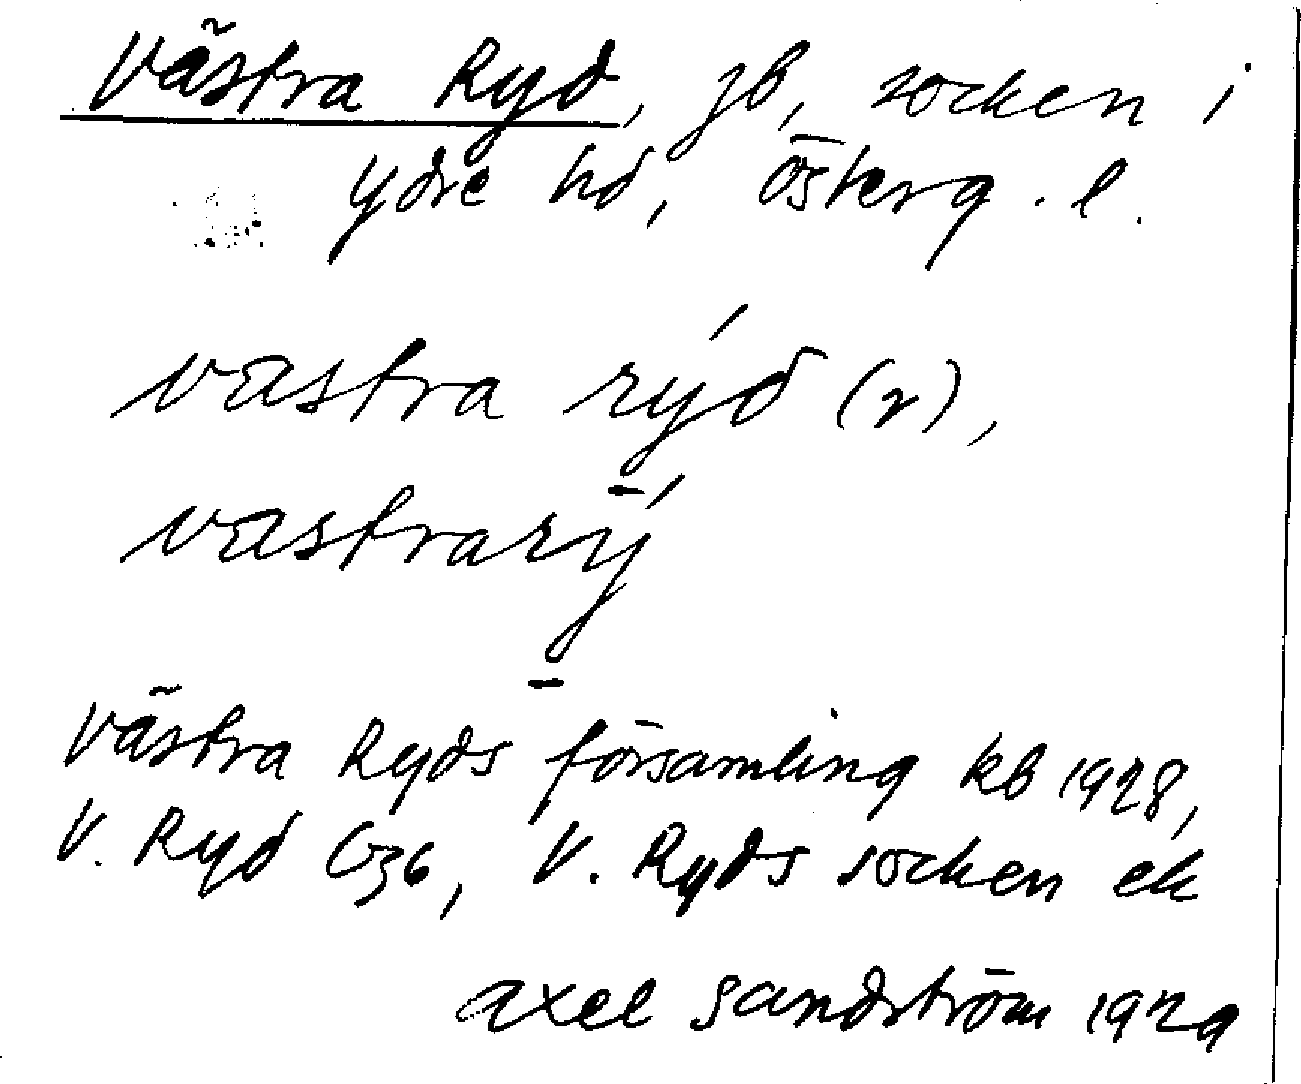 Västra Ryd, jb, socken i
Ydre hd, Österg. l.
vastra rýd (r),
vastrarȳ́
Västra Ryds församling kb 1928,
V. Ryd G36, V. Ryds socken ek
Axel Sandström 1929